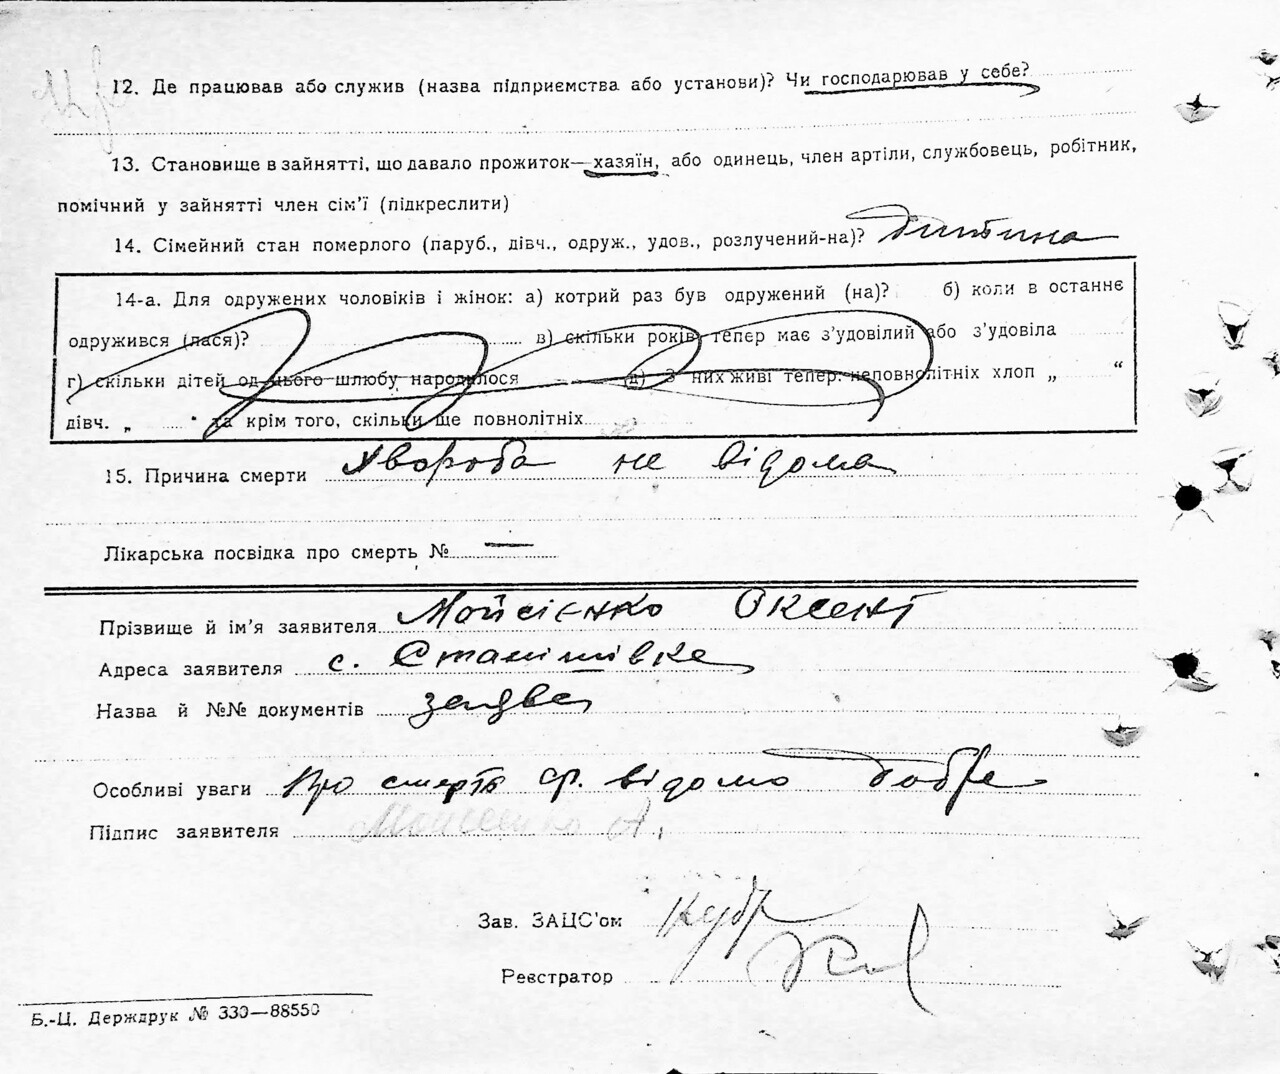 12. Де працював або служив (назва підприємства або установи)? Чи господарював у себе?
13. Становище в зайнятті, що давало прожиток—хазяїн, або одинець, член артіли, службовець, робітник,
помічний у зайнятті член сім'ї (підкреслити)
14. Сімейний стан померлого (паруб., дівч., одруж., удов., розлучений-на)? Дитина
14-а. Для одружених чоловіків і жінок: а) котрий раз був одружений (на)? б) коли в останнє
одружився (лася)? в) скільки років тепер має з'удовілий або з'удовіла
г) скільки дітей од нього шлюбу народилося д) З них живі тепер: неповнолітніх хлоп „ “
дівч. „ “ та крім того, скільки ще повнолітніх
15. Причина смерти Хвороба не відома
Лікарська посвідка про смерть № —
Прізвище й ім'я заявителя Мойсієнко Оксент
Адреса заявителя с. Станішівка
Назва й №№ документів
Особливі уваги Про смерть гр. відомо добре
Підпис заявителя Мойсієнко А.
Зав. ЗАЦС'ом
Реєстратор
Б.-Ц. Держдрук № 330—88550